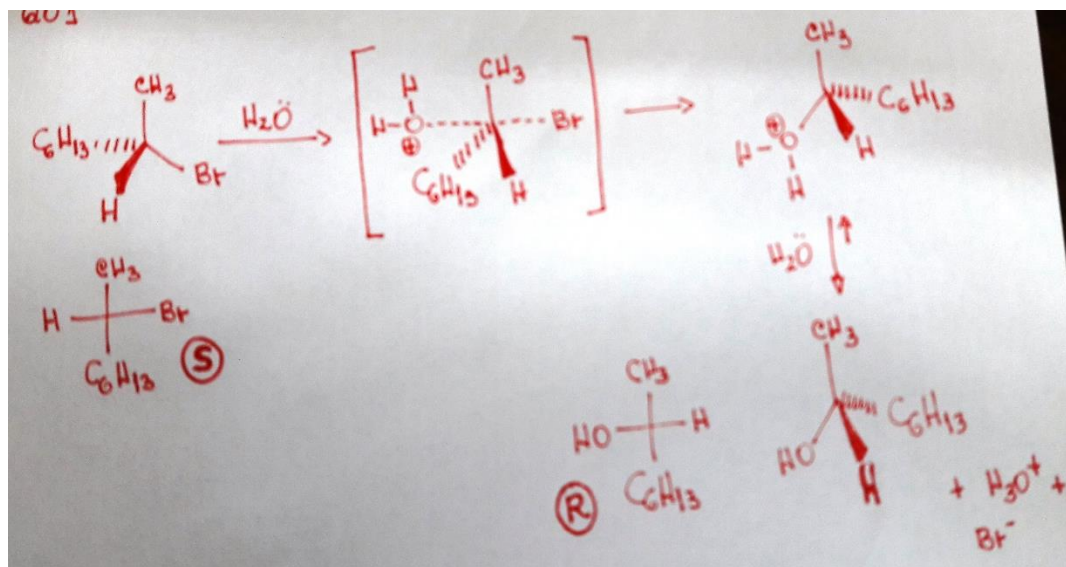 CH3
C6H13
Br
H
H2Ö
H
H-O
⊕
CH3
Br
C6H13
H
CH3
C6H13
⊕
H-O
H
H
H2Ö
CH3
H
Br
C6H13
S
CH3
HO
H
C6H13
R
CH3
C6H13
HO
H
+ H3O+ +
Br-